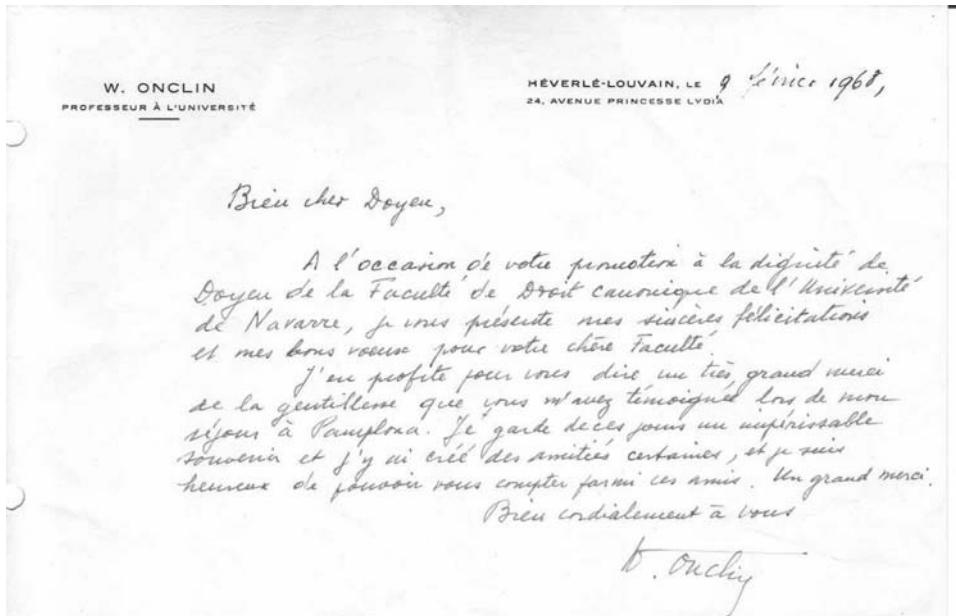 W. ONCLIN
PROFESSEUR À L'UNIVERSITÉ
HÉVERLÉ-LOUVAIN, LE 9 février 1968,
24, AVENUE PRINCESSE LYDIA
Bien cher Doyen,
A l'occasion de votre promotion à la dignité de
Doyen de la Faculté de Droit canonique de l'Université
de Navarre, je vous présente mes sincères félicitations
et mes bons voeux pour votre chère Faculté.
J'en profite pour vous dire un très grand merci
de la gentillesse que vous m'avez témoignée lors de mon
séjour à Pamplona. Je garde de ces jours un impérissable
souvenir et j'y ai créé des amitiés certaines, et je suis
heureux de pouvoir vous compter parmi ces amis. Un grand merci.
Bien cordialement à vous
W. Onclin